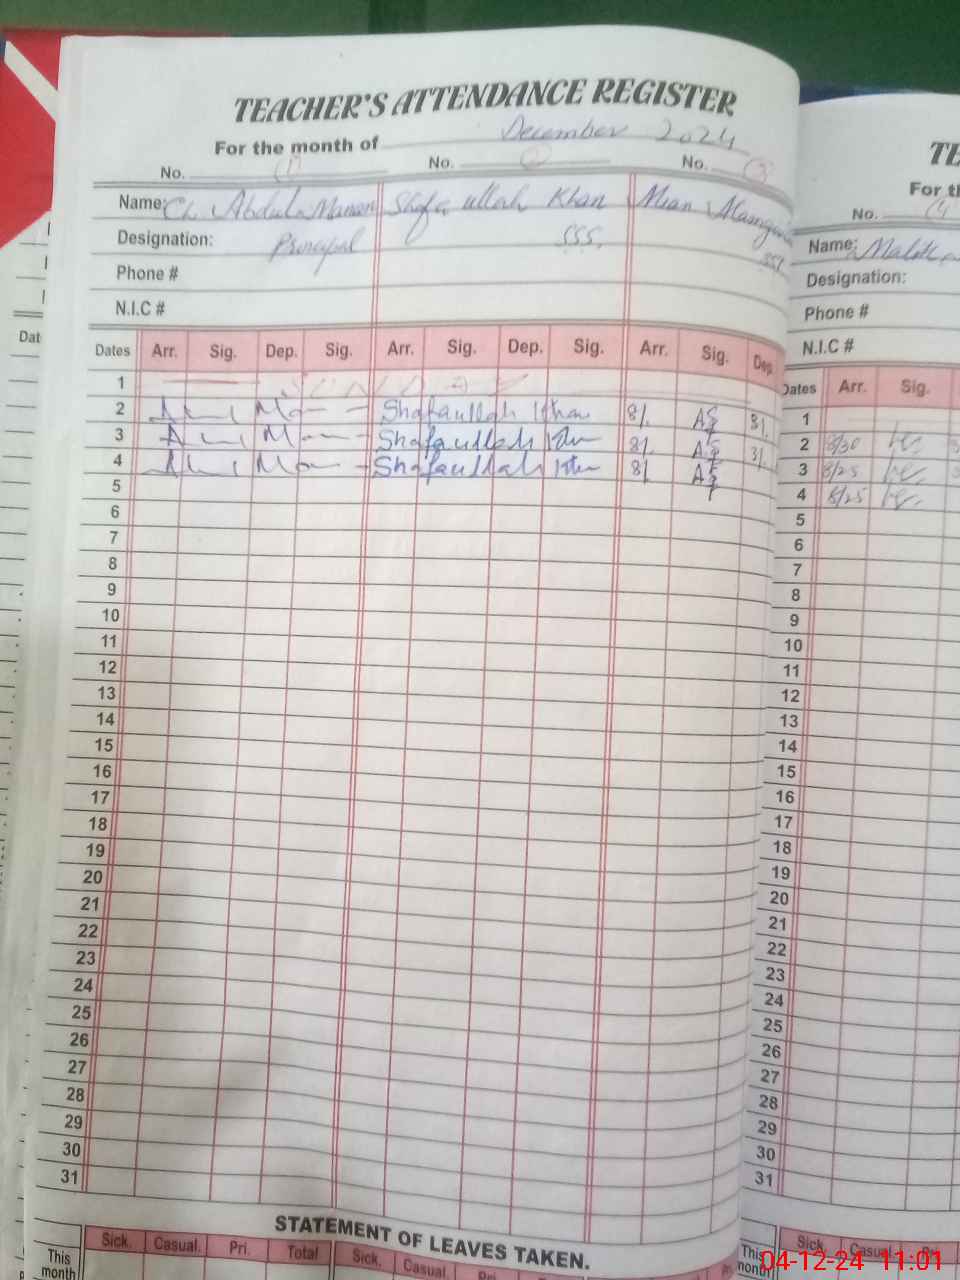 TEACHER'S ATTENDANCE REGISTER
For the month of December 2024
No. 1 No. 2 No. 3
Name: Ch. Abdul Manan Shafa ullah Khan Mian
Designation: Principal SSS. SST
Phone #
N.I.C #
Dates Arr. Sig. Dep. Sig. Arr. Sig. Dep. Sig. Arr. Sig. Dep.
1
2 Shafaullah Khan 8/. 3/.
3 Shafaullah Khan 8/. 3/.
4 Shafaullah Khan 8/.
5
6
7
8
9
10
11
12
13
14
15
16
17
18
19
20
21
22
23
24
25
26
27
28
29
30
31
STATEMENT OF LEAVES TAKEN.
Sick. Casual. Pri. Total Sick. Casual. Pri.
This month
TE
For th
No. 4
Name:
Designation:
Phone #
N.I.C #
Dates Arr. Sig.
1
2 8/30
3 8/25
4 8/25
5
6
7
8
9
10
11
12
13
14
15
16
17
18
19
20
21
22
23
24
25
26
27
28
29
30
31
Sick. Casual.
This month
Dat
04-12-24 11:01